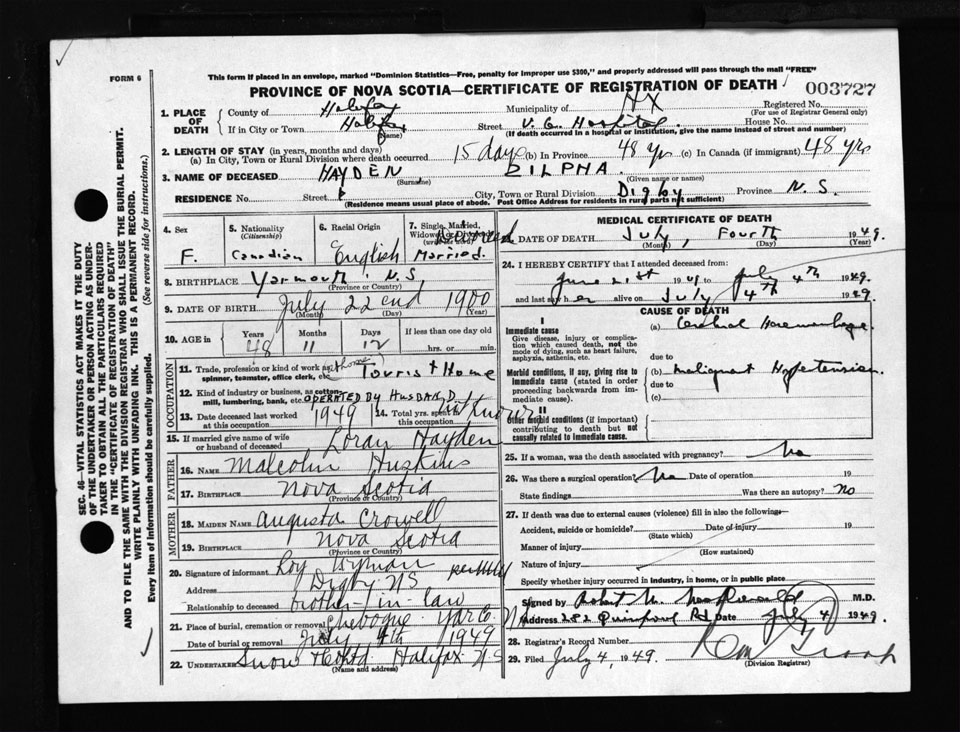 FORM 6
This form if placed in an envelope, marked "Dominion Statistics—Free, penalty for improper use $300," and properly addressed will pass through the mail "FREE"
PROVINCE OF NOVA SCOTIA—CERTIFICATE OF REGISTRATION OF DEATH
003727
1. PLACE OF DEATH
County of Halifax Municipality of HX Registered No.
(For use of Registrar General only)
If in City or Town Halifax Street V. G. Hospital House No.
(Name) (If death occurred in a hospital or institution, give the name instead of street and number)
2. LENGTH OF STAY (in years, months and days)
(a) In City, Town or Rural Division where death occurred 15 days (b) In Province 48 yrs (c) In Canada (if immigrant) 48 yrs
3. NAME OF DECEASED HAYDEN, DILPHA.
(Surname) (Given name or names)
RESIDENCE No. Street City, Town or Rural Division Digby Province N.S.
(Residence means usual place of abode. Post Office Address for residents in rural parts not sufficient)
4. Sex
F.
5. Nationality
(Citizenship)
Canadian
6. Racial Origin
English
7. Single, Married,
Married.
8. BIRTHPLACE Yarmouth, N.S
(Province or Country)
9. DATE OF BIRTH July 22nd 1900
(Month) (Day) (Year)
10. AGE in Years Months Days If less than one day old
48 11 12 hrs. or min.
OCCUPATION
11. Trade, profession or kind of work as
spinner, teamster, office clerk, etc. Tourist Home
12. Kind of industry or business, as cotton
mill, lumbering, bank, etc. OPERATED BY HUSBAND
13. Date deceased last worked
at this occupation 1949
14. Total yrs. spent
this occupation
15. If married give name of wife
or husband of deceased Loran Hayden
FATHER
16. NAME Malcolm Huskins
17. BIRTHPLACE Nova Scotia
(Province or Country)
MOTHER
18. MAIDEN NAME Augusta Crowell
19. BIRTHPLACE Nova Scotia
(Province or Country)
20. Signature of informant Roy Wyman
Address Digby NS
Relationship to deceased brother-in-law
21. Place of burial, cremation or removal Chebogue Yar Co.
Date of burial or removal July 4th 1949
22. UNDERTAKER Snow & Co Ltd Halifax NS
(Name and address)
MEDICAL CERTIFICATE OF DEATH
DATE OF DEATH July, Fourth 1949.
(Month) (Day) (Year)
24. I HEREBY CERTIFY that I attended deceased from:
June 21st 1949 to July 4th 1949.
and last saw her alive on July 4th 1949.
CAUSE OF DEATH
I
Immediate cause
Give disease, injury or complication which caused death, not the mode of dying, such as heart failure, asphyxia, asthenia, etc.
(a) Cerebral Haemorrhage.
due to
Morbid conditions, if any, giving rise to immediate cause (stated in order proceeding backwards from immediate cause).
(b) malignant Hypertension
due to
(c)
II
Other morbid conditions (if important) contributing to death but not causally related to immediate cause.
25. If a woman, was the death associated with pregnancy? No
26. Was there a surgical operation? No Date of operation 19
State findings Was there an autopsy? NO
27. If death was due to external causes (violence) fill in also the following:—
Accident, suicide or homicide? Date of injury 19
(State which)
Manner of injury
(How sustained)
Nature of injury
Specify whether injury occurred in industry, in home, or in public place
Signed by Robert M. MacDonald M.D.
Address 282 Quinpool Rd Date July 4 1949
28. Registrar's Record Number
29. Filed July 4, 1949.
(Division Registrar)
SEC. 46—VITAL STATISTICS ACT MAKES IT THE DUTY
OF THE UNDERTAKER OR PERSON ACTING AS UNDERTAKER TO OBTAIN ALL THE PARTICULARS REQUIRED
IN THE "CERTIFICATE OF REGISTRATION OF DEATH"
AND TO FILE THE SAME WITH THE DIVISION REGISTRAR WHO SHALL ISSUE THE BURIAL PERMIT.
WRITE PLAINLY WITH UNFADING INK. THIS IS A PERMANENT RECORD.
Every item of information should be carefully supplied. (See reverse side for instructions.)